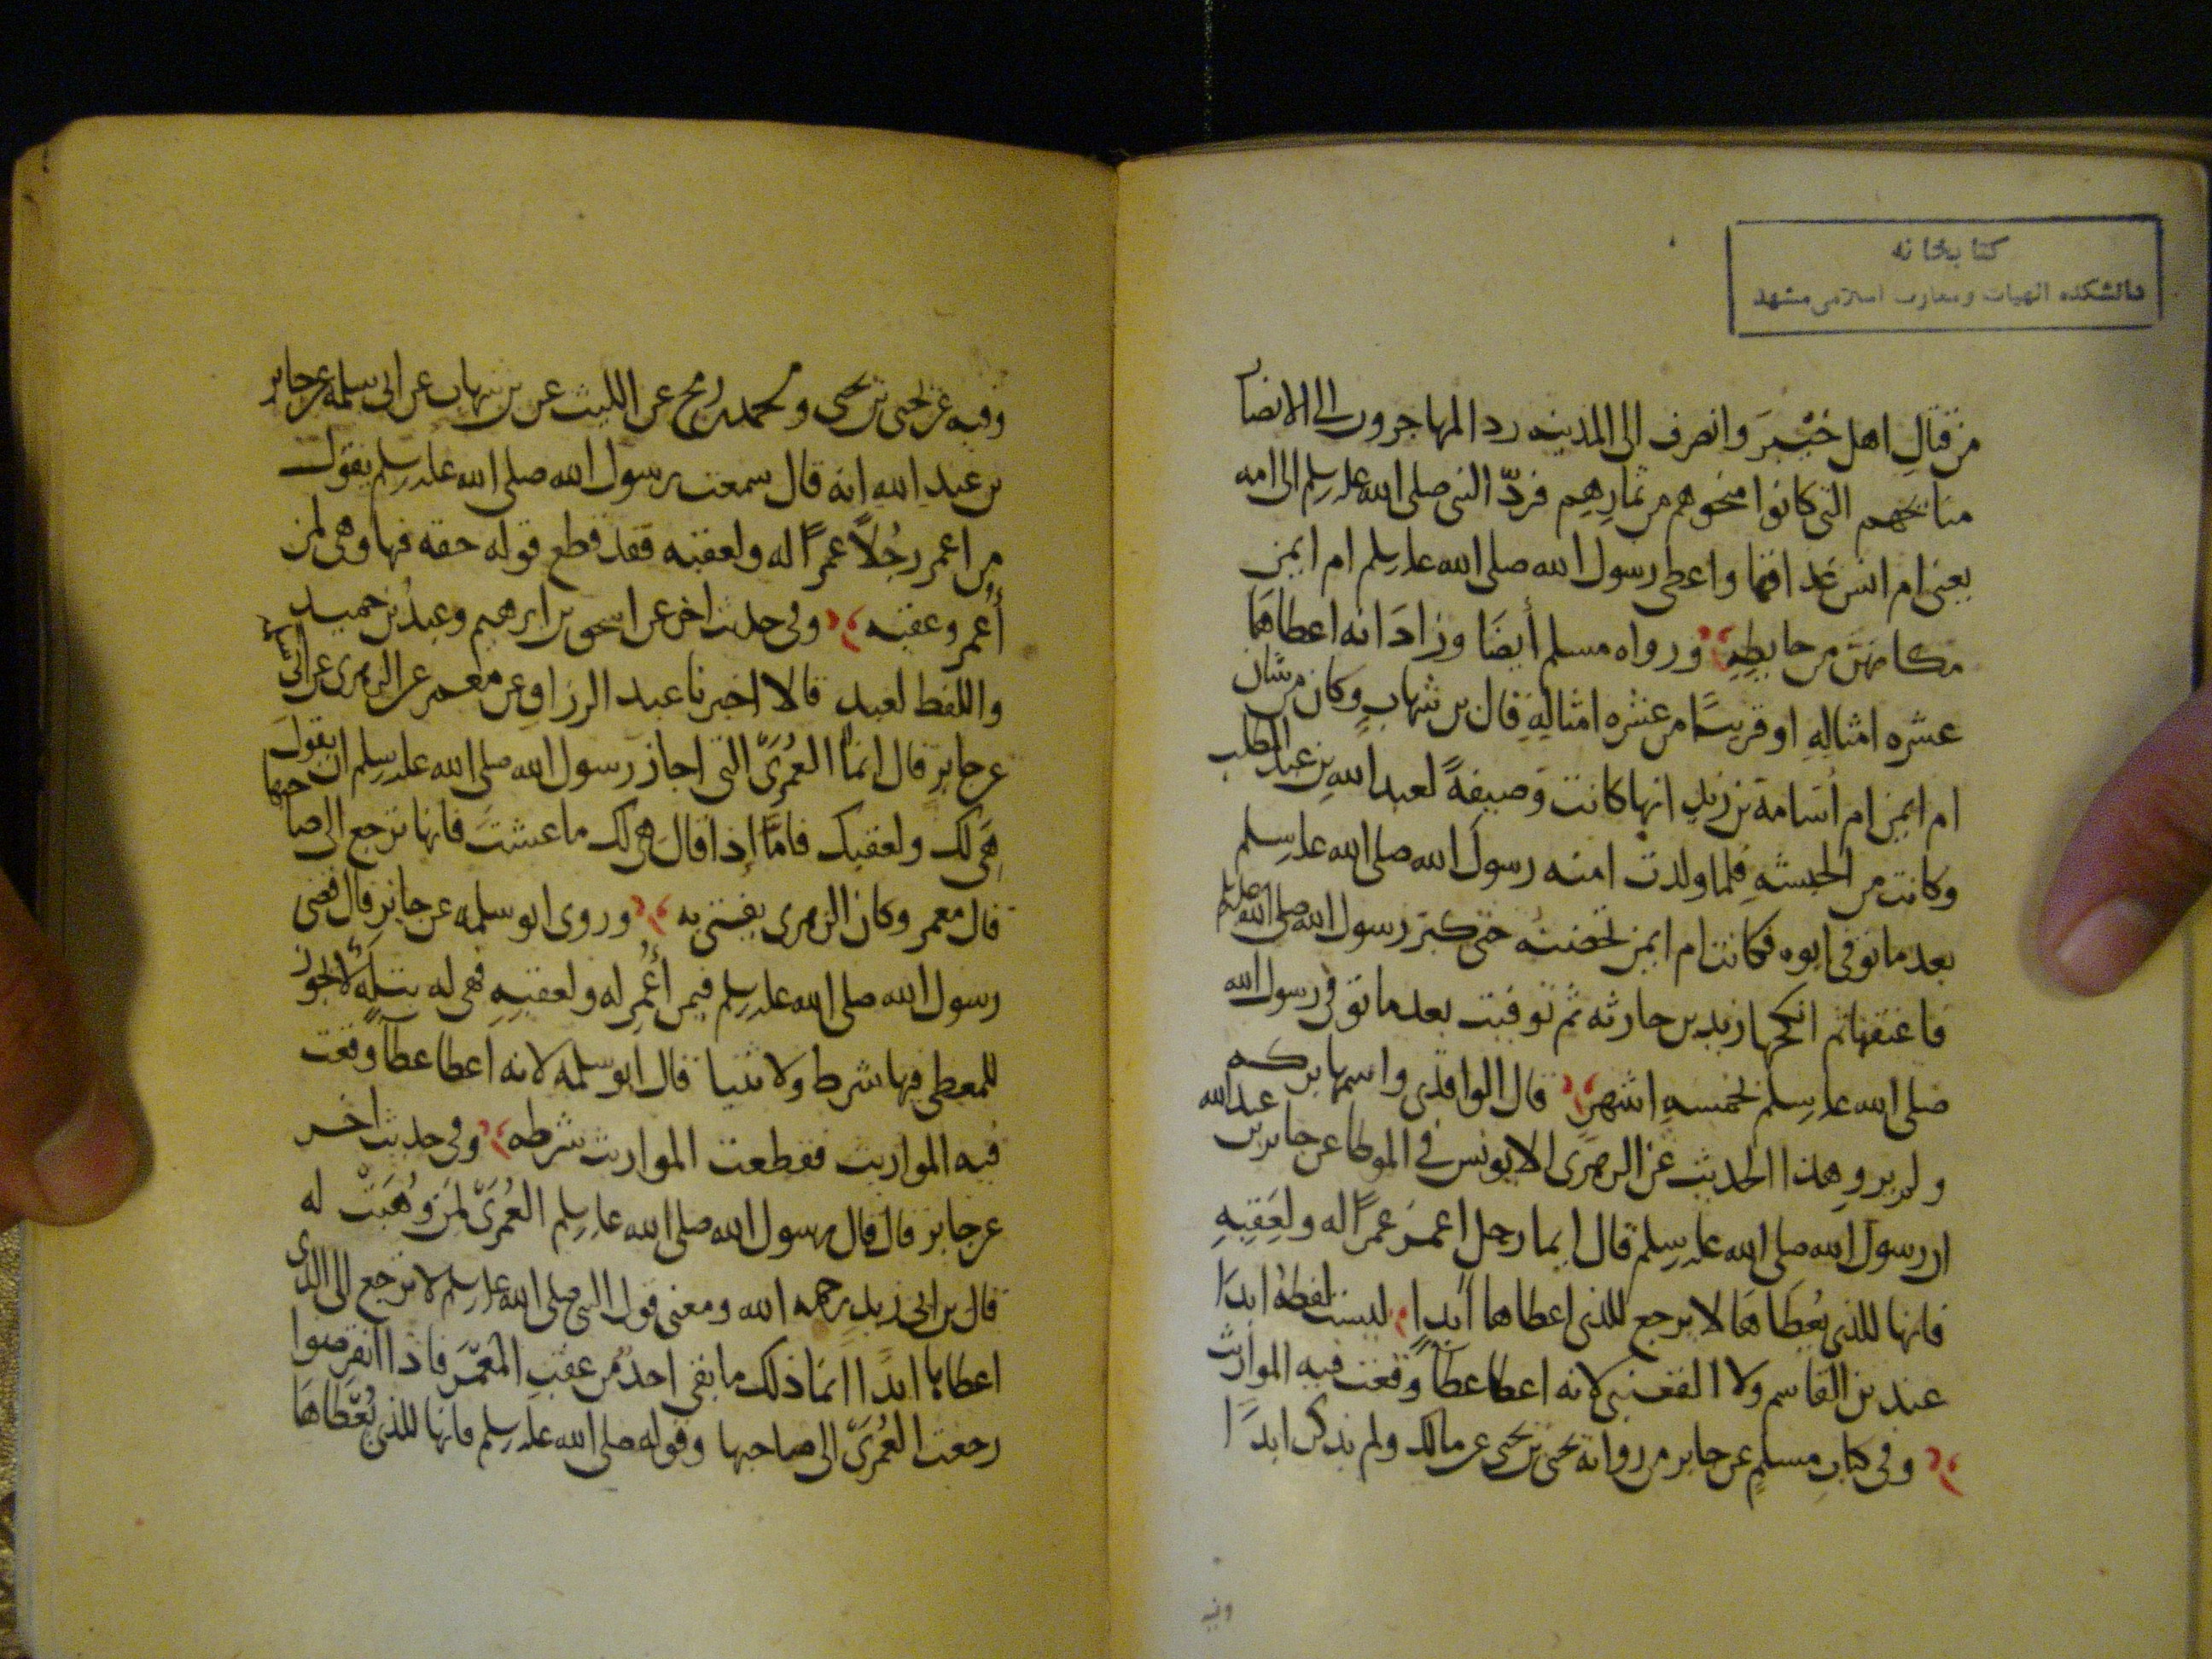 كتابخانه
دانشكده الهيات ومعارف اسلامى مشهد
من قتال اهل خيبر وانصرف الى المدينه رد المهاجرون الى الانصار
منائحهم التى كانوا منحوهم من ثمارهم فردّ النبى صلى الله عليه وسلم الى امه
يعنى ام انس عذاقها واعطى رسول الله صلى الله عليه وسلم ام ايمن
مكانهن من حايطه ورواه مسلم أيضًا وزاد انه اعطاها
عشره امثاله او قريبًا من عشره امثاله قال بن شهاب وكان من شان
ام ايمن ام أسامة بن زيد انها كانت وصيفةً لعبد الله بن عبد المطلب
وكانت من الحبشه فلما ولدت امنه رسول الله صلى الله عليه وسلم
بعد ما توفى ابوه فكانت ام ايمن تحضنه حتى كبر رسول الله صلى الله عليه وسلم
فاعتقها ثم انكحها زيد بن حارثه ثم توفيت بعد ما توفى رسول الله
صلى الله عليه وسلم بخمسه اشهر قال الواقدى واسمها بركه
ولم يرو هذا الحديث عن الزهرى الا يونس فى الموطا عن جابر بن عبد الله
ان رسول الله صلى الله عليه وسلم قال ايما رجل اعمر عمرًا له ولعقبه
فانها للذى يُعطاها لا يرجع للذى اعطاها ابدا ليست لفظهُ ابدا
عند بن القاسم ولا القعنبى لانه اعطا عطاً وقعت فيه المواريث
وفى كتاب مسلم عن جابر من رواية يحيى بن يحيى عن مالك ولم يذكر ابدًا
وفيه
وفيه عن يحيى بن يحيى ومحمد بن رمح عن الليث عن بن شهاب عن ابى سلمة عن جابر
بن عبد الله انه قال سمعت رسول الله صلى الله عليه وسلم يقول
من اعمر رجُلاً عمرًا له ولعقبه فقد قطع قوله حقه فيها وهى لمن
أُعمر وعقبه وفى حديث اخر عن اسحق بن ابرهيم وعبدُ بن حميد
واللفظ لعبد قالا اخبرنا عبد الرزاق عن معمر عن الزهرى عن ابى سلمة
عن جابر قال انما العُمرىَ التى اجاز رسول الله صلى الله عليه وسلم ان يقول
هى لك ولعقبك فامّا إذا قال هى لك ما عشت فانها ترجع الى صاحبها
قال معمر وكان الزهرى يفتى به وروى ابو سلمه عن جابر قال قضى
رسول الله صلى الله عليه وسلم فيمن أُعمِر له ولعقبه فهى له بتلةٌ لا يجوز
للمعطى فيها شرط ولا ثنيا قال ابو سلمه لانه اعطا عطاً وقعت
فيه المواريث فقطعت المواريث شرطه وفى حديث اخر
عن جابر قال قال رسول الله صلى الله عليه وسلم العُمرىَ لمن وُهبَتْ له
قال بن ابى زيد رحمه الله ومعنى قول النبى صلى الله عليه وسلم لا ترجع الى الذى
اعطاها ابدًا انما ذلك ما بقى احد من عقب المعمَّر فاذا انقرضوا
رجعت العُمرىَ الى صاحبها وقوله صلى الله عليه وسلم فانها للذى يُعطاها